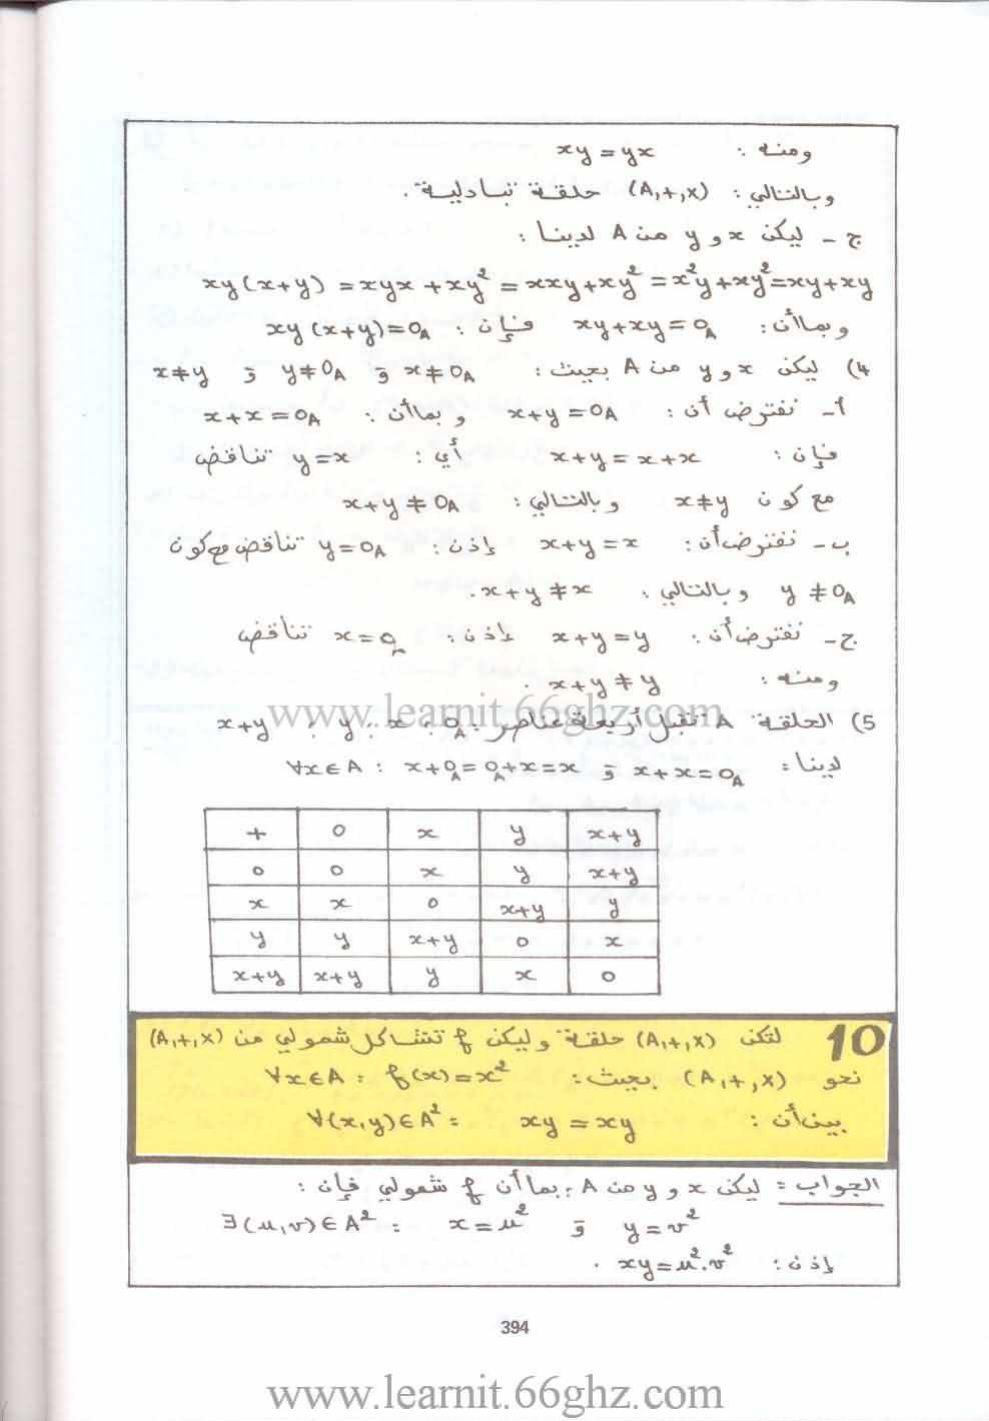 ومنه : xy = yx
وبالتالي : (A,+,×) حلقة تبادلية .
ج - ليكن x و y من A لدينا :
xy(x+y) = xyx + xy² = xxy + xy² = x²y + xy² = xy + xy
وبما أن : xy + xy = 0A فإن : xy(x+y) = 0A
4) ليكن x و y من A بحيث : x ≠ 0A و y ≠ 0A و x ≠ y
أ - نفترض أن : x + y = 0A وبما أن : x + x = 0A
فإن : x + y = x + x أي : y = x تناقض
مع كون x ≠ y وبالتالي : x + y ≠ 0A
ب - نفترض أن : x + y = x إذن : y = 0A تناقض مع كون
y ≠ 0A وبالتالي : x + y ≠ x .
ج - نفترض أن : x + y = y إذن : x = 0A تناقض
ومنه : x + y ≠ y .
www.learnit.66ghz.com
5) الحلقة A تقبل أربعة عناصر : 0A ; x ; y ; x+y
لدينا : x + x = 0A و ∀x∈A : x + 0A = 0A + x = x
+ 0 x y x+y
0 0 x y x+y
x x 0 x+y y
y y x+y 0 x
x+y x+y y x 0
10 لتكن (A,+,×) حلقة وليكن f تشاكل شمولي من (A,+,×)
نحو (A,+,×) بحيث : ∀x∈A : f(x) = x²
بين أن : ∀(x,y)∈A² : xy = xy
الجواب : ليكن x و y من A ; بما أن f شمولي فإن :
∃(u,v)∈A² : x = u² و y = v²
إذن : xy = u².v² .
394
www.learnit.66ghz.com